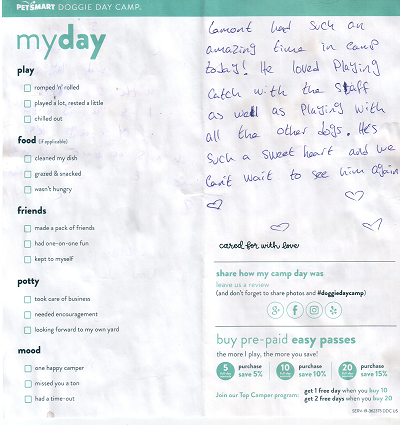 PETSMART DOGGIE DAY CAMP.
myday
play
romped 'n' rolled
played a lot, rested a little
chilled out
food (if applicable)
cleaned my dish
grazed & snacked
wasn't hungry
friends
made a pack of friends
had one-on-one fun
kept to myself
potty
took care of business
needed encouragement
looking forward to my own yard
mood
one happy camper
missed you a ton
had a time-out
Lamont had such an
amazing time in camp
today! He loved Playing
Catch with the Staff
as well as Playing with
all the other dogs. He's
Such a sweet heart and we
Can't wait to see him again
cared for with love
share how my camp day was
leave us a review
(and don't forget to share photos and #doggiedaycamp)
buy pre-paid easy passes
the more I play, the more you save!
5 purchase save 5%
10 purchase save 10%
20 purchase save 15%
Join our Top Camper program:
get 1 free day when you buy 10
get 2 free days when you buy 20